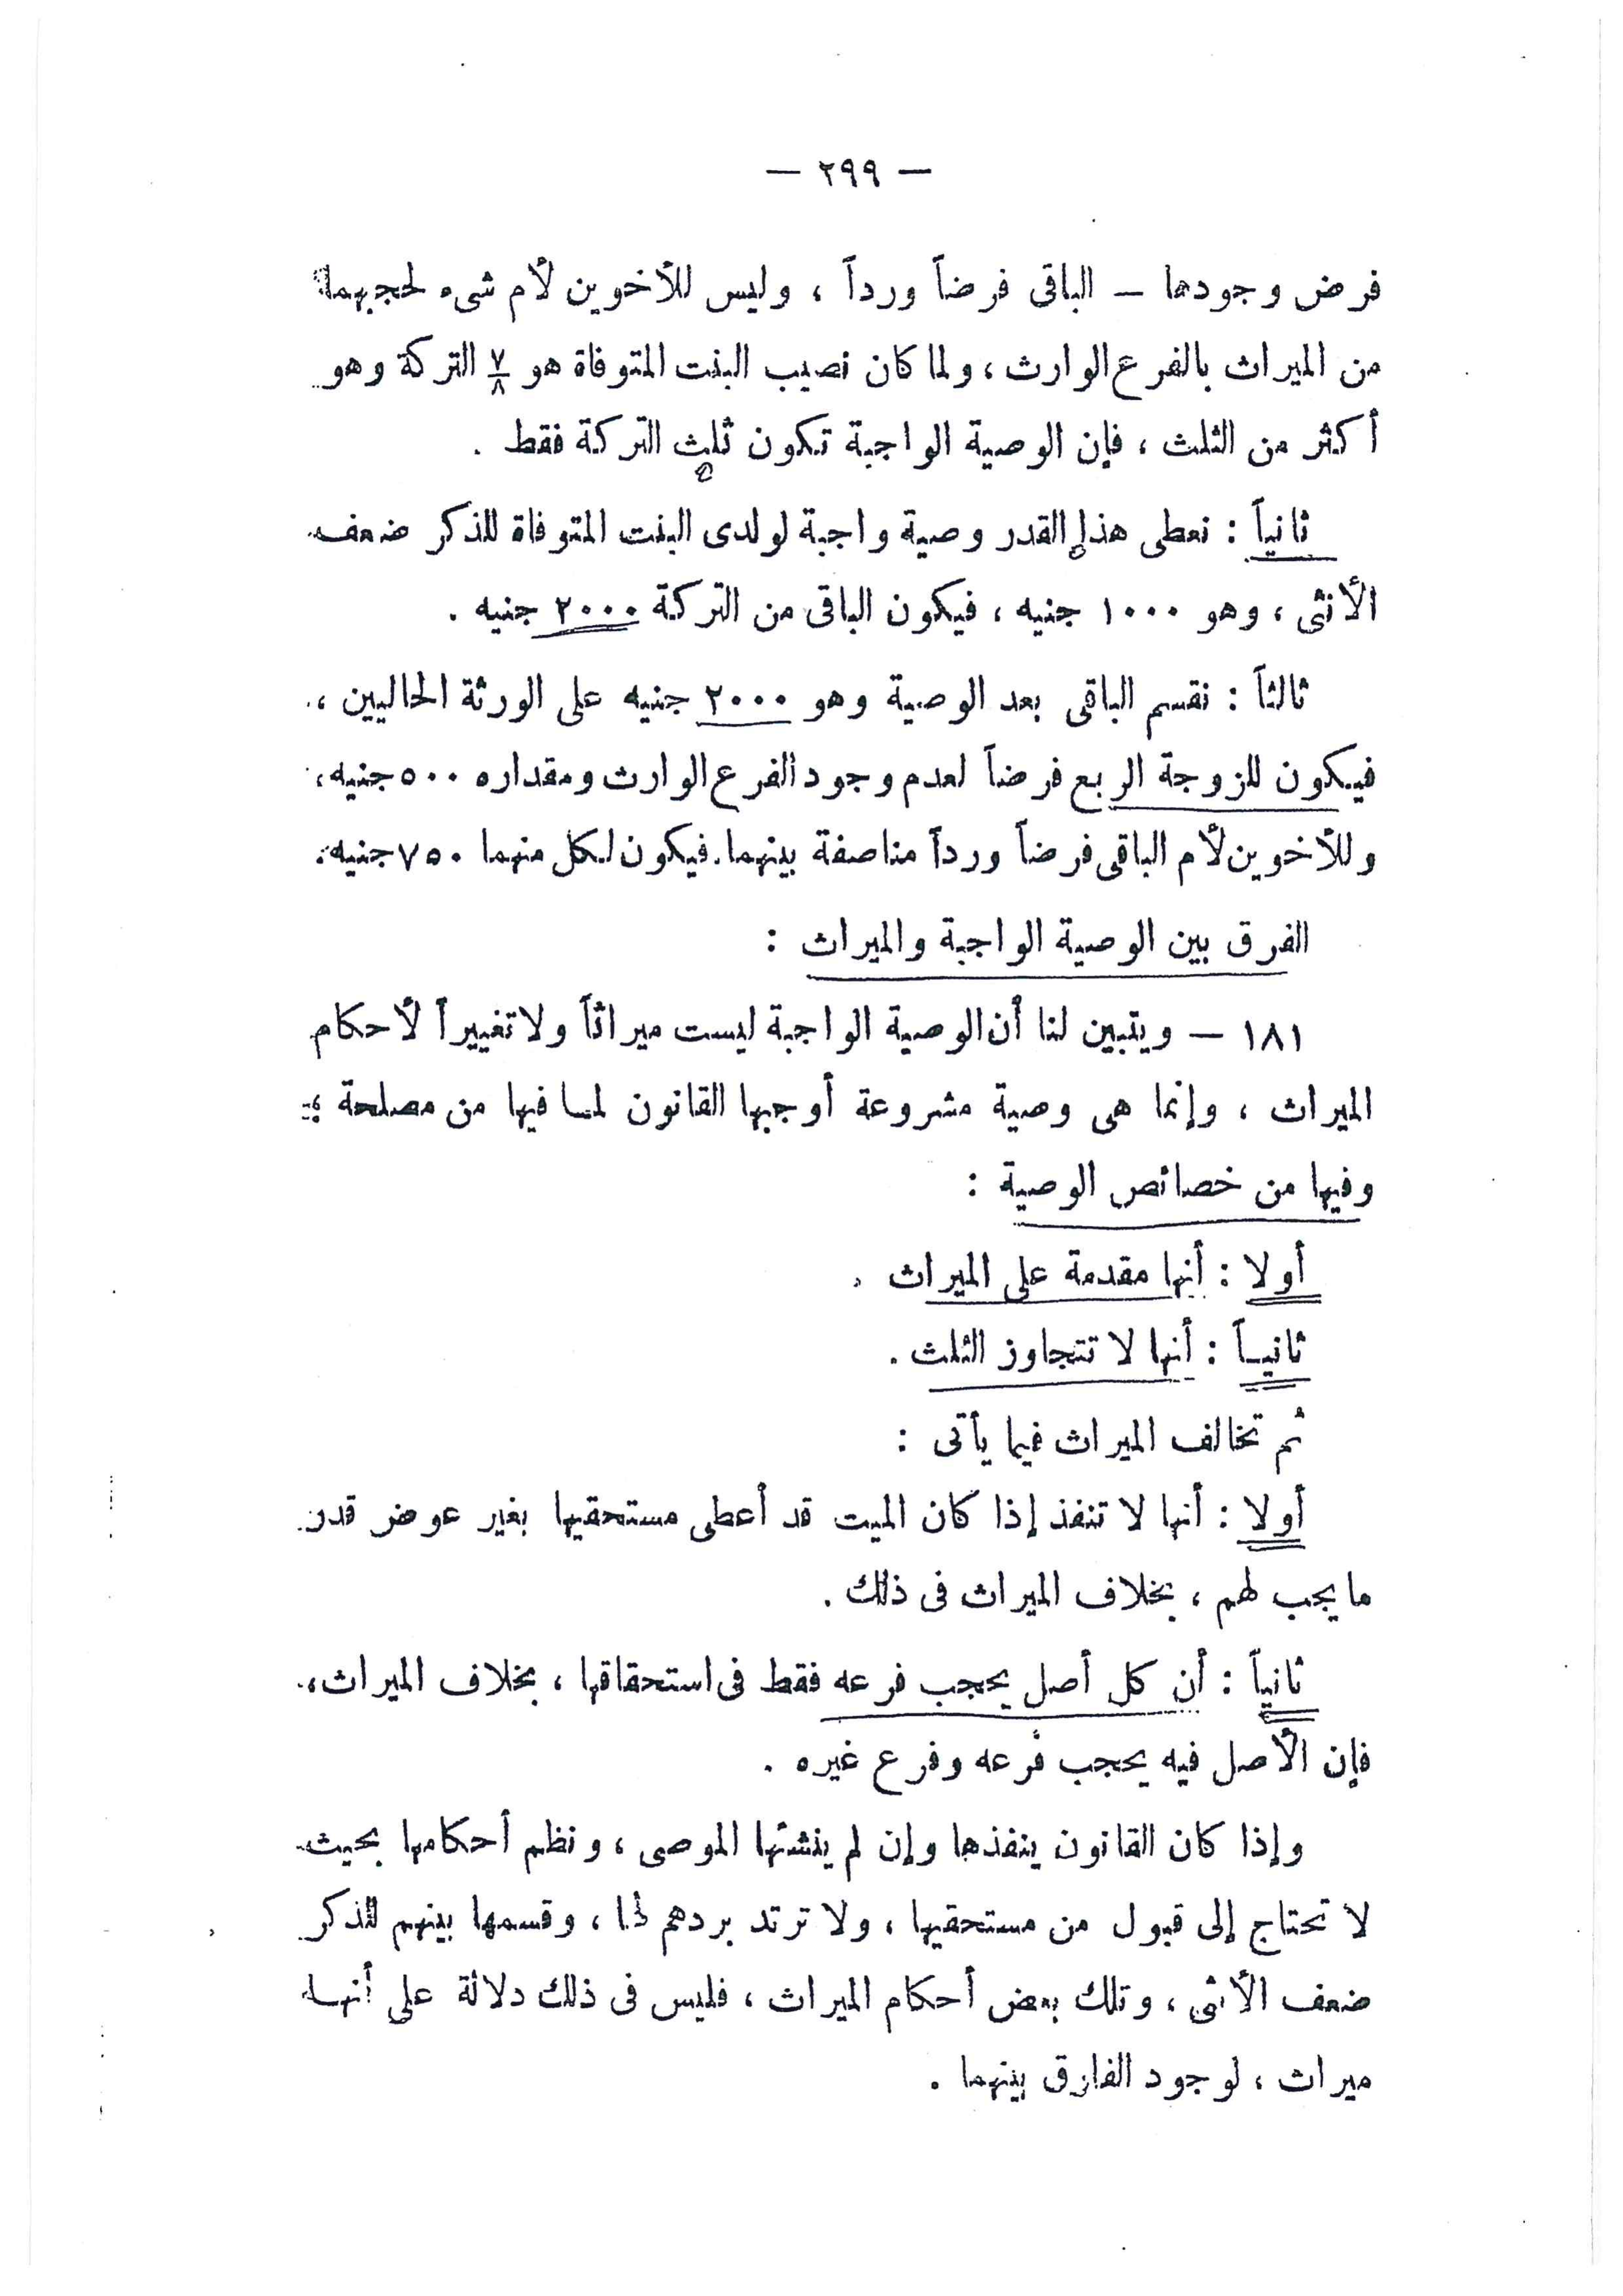 — ٢٩٩ —
فرض وجودها — الباقى فرضاً ورداً ، وليس للأخوين لأم شىء لحجبهما
من الميراث بالفرع الوارث ، ولما كان نصيب البنت المتوفاة هو ٧/٨ التركة وهو
أكثر من الثلث ، فإن الوصية الواجبة تكون ثلث التركة فقط .
ثانياً : نعطى هذا القدر وصية واجبة لولدى البنت المتوفاة للذكر ضعف
الأنثى ، وهو ١٠٠٠ جنيه ، فيكون الباقى من التركة ٢٠٠٠ جنيه .
ثالثاً : نقسم الباقى بعد الوصية وهو ٢٠٠٠ جنيه على الورثة الحاليين ،
فيكون للزوجة الربع فرضاً لعدم وجود الفرع الوارث ومقداره ٥٠٠ جنيه ،
وللأخوين لأم الباقى فرضاً ورداً مناصفة بينهما. فيكون لكل منهما ٧٥٠ جنيه .
الفرق بين الوصية الواجبة والميراث :
١٨١ — ويتبين لنا أن الوصية الواجبة ليست ميراثاً ولا تغييراً لأحكام
الميراث ، وإنما هى وصية مشروعة أوجبها القانون لما فيها من مصلحة ؛
وفيها من خصائص الوصية :
أولا : أنها مقدمة على الميراث .
ثانيـاً : أنها لا تتجاوز الثلث .
ثم تخالف الميراث فيما يأتى :
أولا : أنها لا تنفذ إذا كان الميت قد أعطى مستحقيها بغير عوض قدر
ما يجب لهم ، بخلاف الميراث فى ذلك .
ثانياً : أن كل أصل يحجب فرعه فقط فى استحقاقها ، بخلاف الميراث ،
فإن الأصل فيه يحجب فرعه وفرع غيره .
وإذا كان القانون ينفذها وإن لم ينشئها الموصى ، ونظم أحكامها بحيث
لا تحتاج إلى قبول من مستحقيها ، ولا ترتد بردهم لها ، وقسمها بينهم للذكر
ضعف الأنثى ، وتلك بعض أحكام الميراث ، فليس فى ذلك دلالة على أنهـا
ميراث ، لوجود الفارق بينهما .